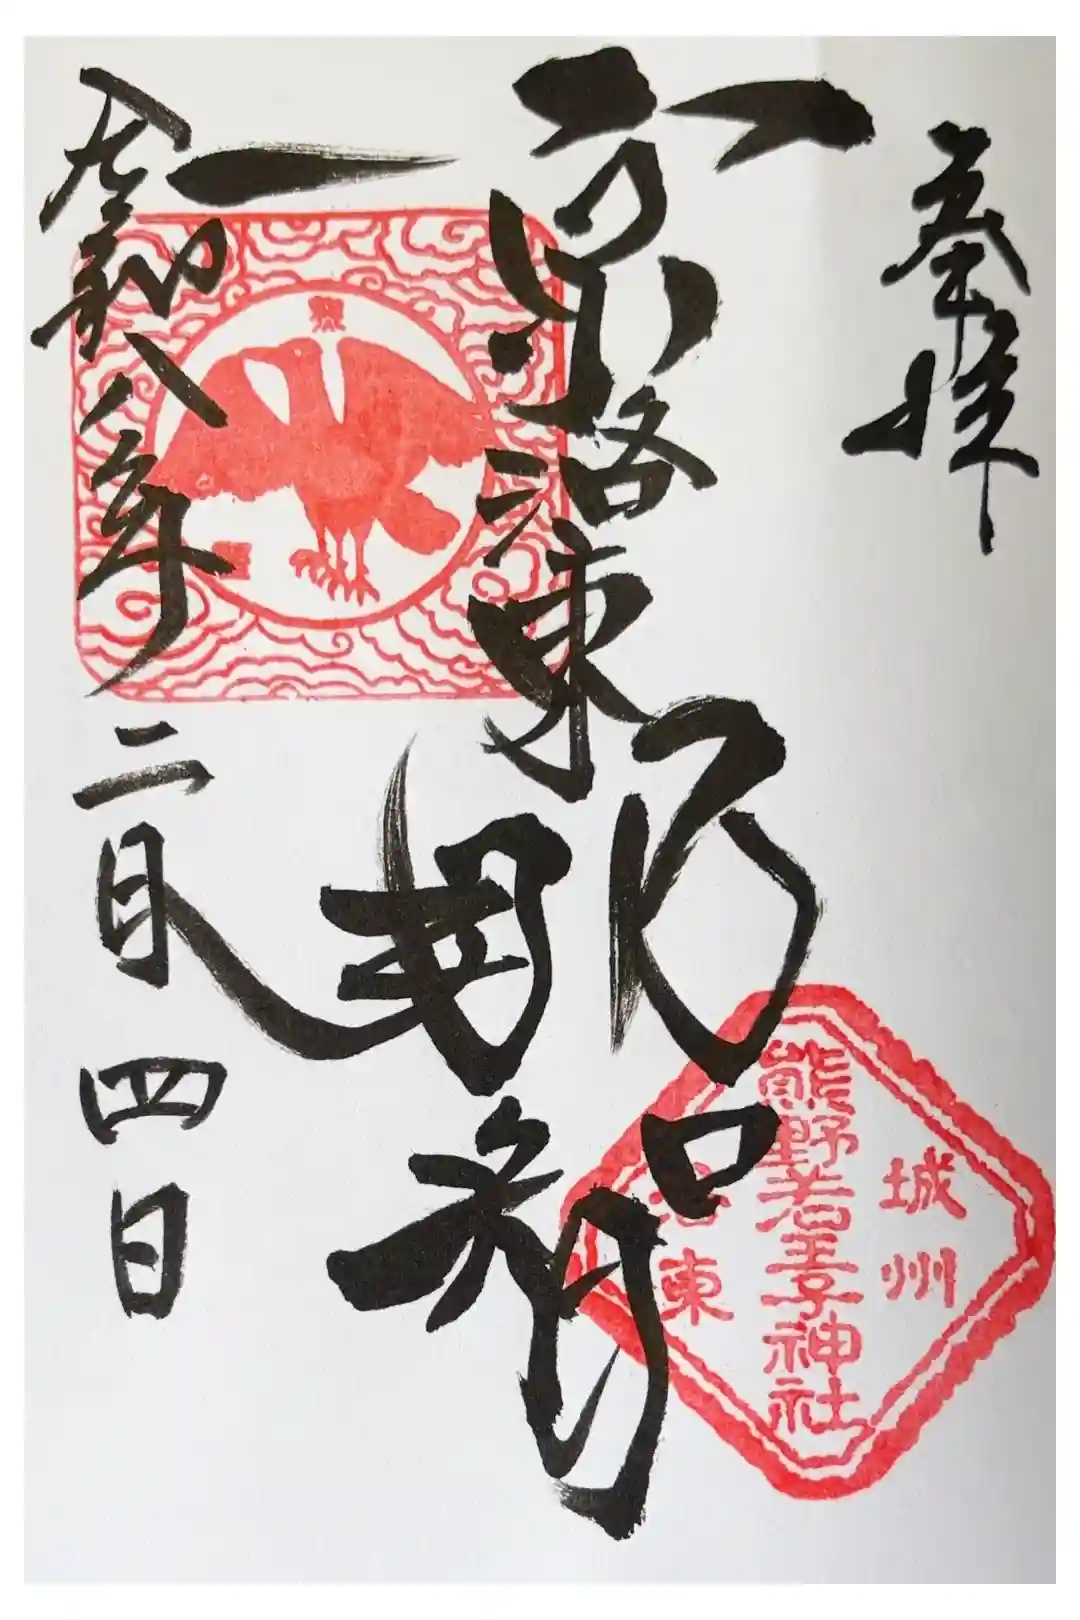 奉拝
京洛東
那智
令和八年二月四日
城州
熊野若王子神社
洛東